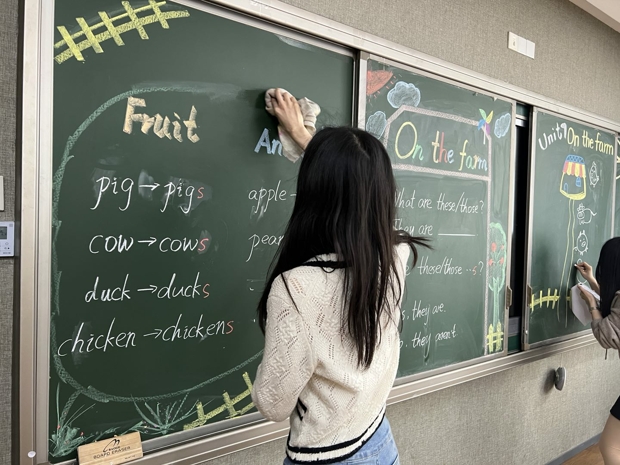 Fruit
pig→pigs
cow→cows
duck→ducks
chicken→chickens
An
apple→
pear
On the farm
What are these/those?
they are
these/those ...s?
, they are.
, they aren't
Unit 4 On the farm
BOARD ERASER